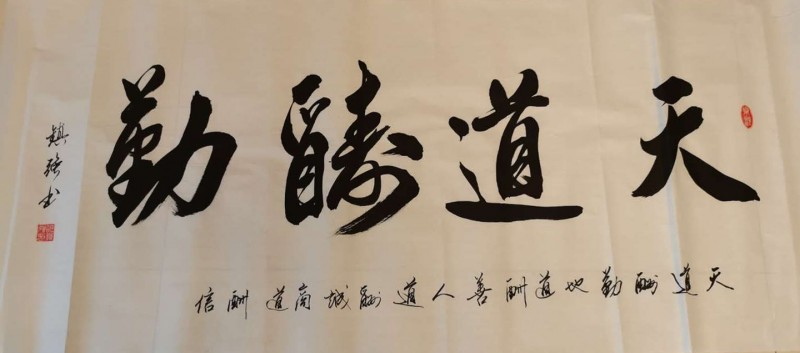 天道酬勤
天道酬勤地道酬善人道酬诚商道酬信
镇强书